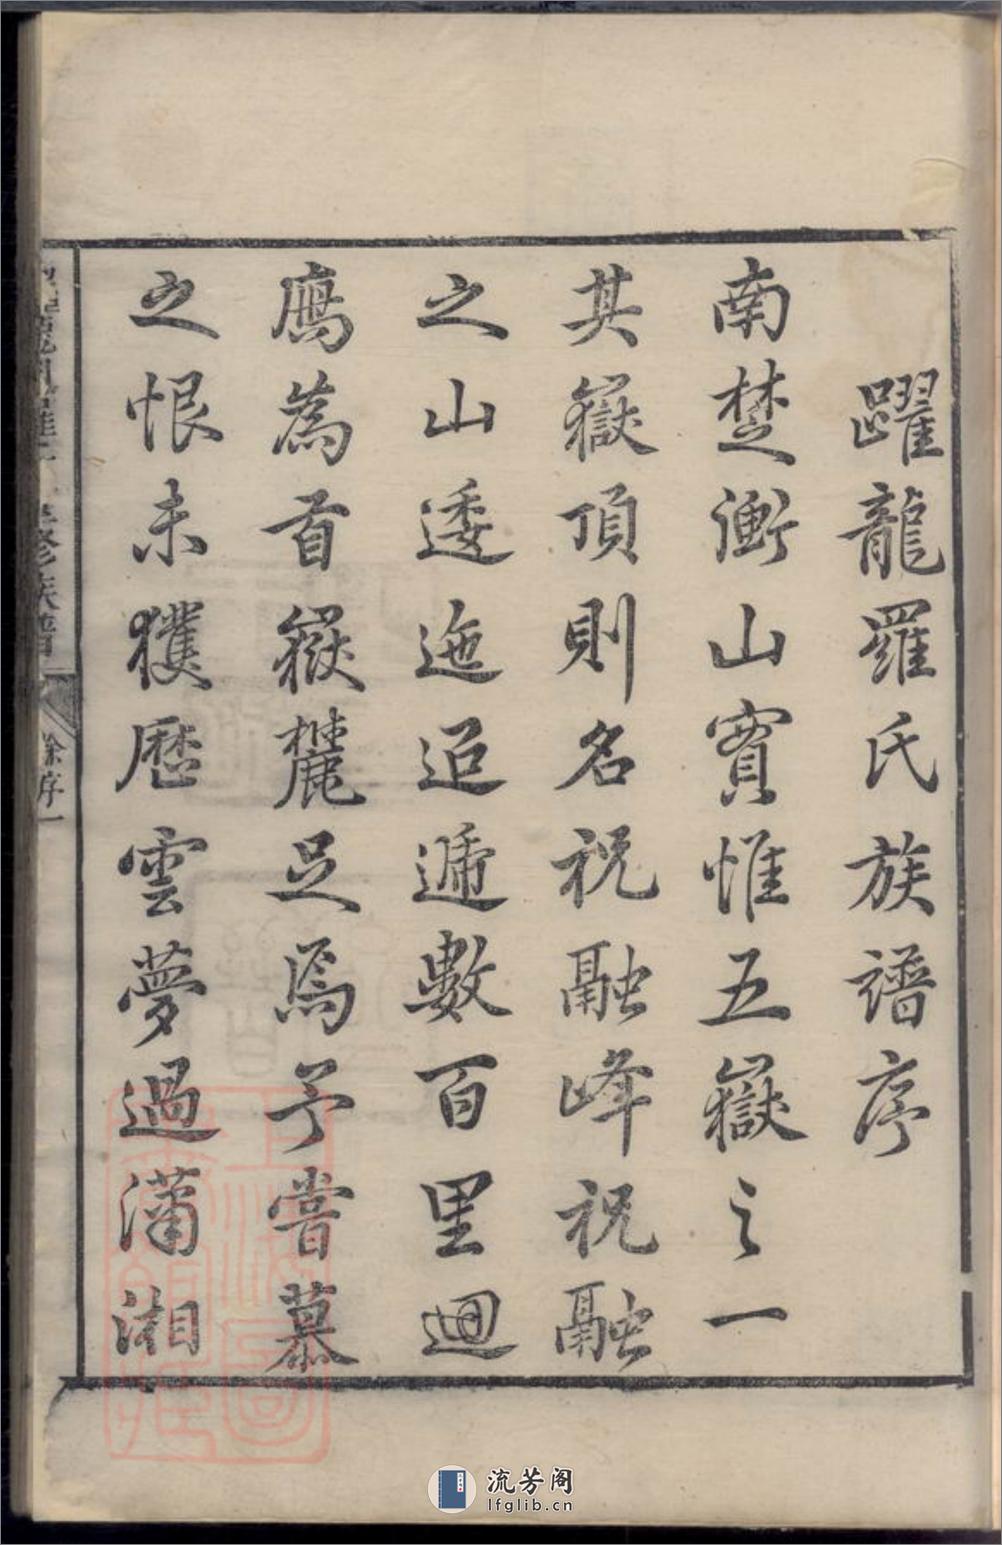 躍龍羅氏族譜序
南楚衡山實惟五嶽之一
其嶽頂則名祝融峰祝融
之山逶迤迢遞數百里迴
鴈為首嶽麓足焉予嘗慕
之恨未獲歷雲夢過瀟湘
修族譜
徐序一
上海圖書館藏
流芳阁
lfglib.cn